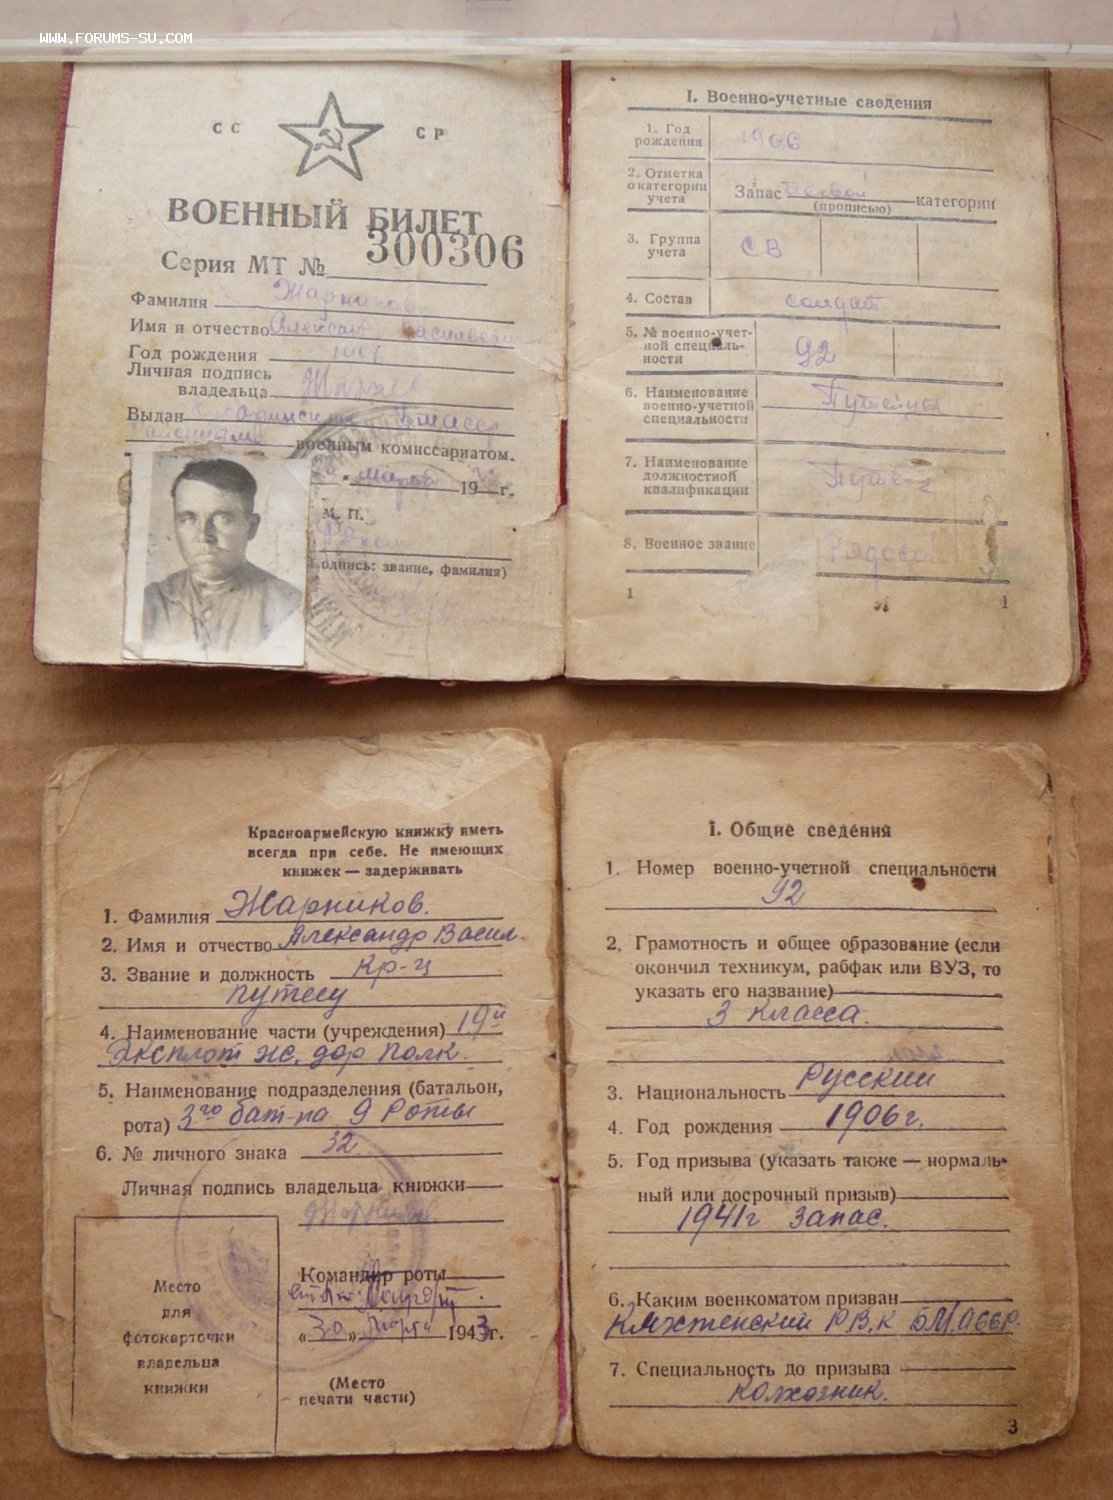 WWW.FORUMS-SU.COM
СС СР
ВОЕННЫЙ БИЛЕТ
Серия МТ № 300306
Фамилия Жарников
Имя и отчество Александр Васильевич
Год рождения 1906
Личная подпись
владельца
Выдан
военным комиссариатом.
марта 19 г.
М. П.
одпись: звание, фамилия)
I. Военно-учетные сведения
1. Год
рождения 1906
2. Отметка
о категории
учета Запас Первой категории
(прописью)
3. Группа
учета СВ
4. Состав солдат
5. № военно-учет-
ной специаль-
ности 92
6. Наименование
военно-учетной
специальности Путейцы
7. Наименование
должностной
квалификации
8. Военное звание Рядовой
1 1
Красноармейскую книжку иметь
всегда при себе. Не имеющих
книжек — задерживать
1. Фамилия Жарников.
2. Имя и отчество Александр Васил.
3. Звание и должность Кр-ц
4. Наименование части (учреждения) 19й
Эксплоат жс. дор Полк.
5. Наименование подразделения (батальон,
рота) 3го бат-на 9 Роты
6. № личного знака 32
Личная подпись владельца книжки
Командир роты
„30„ Марта 1943г.
Место
для
фотокарточки
владельца
книжки
(Место
печати части)
I. Общие сведения
1. Номер военно-учетной специальности
92
2. Грамотность и общее образование (если
окончил техникум, рабфак или ВУЗ, то
указать его название)
3 класса.
3. Национальность Русский
4. Год рождения 1906г.
5. Год призыва (указать также — нормаль-
ный или досрочный призыв)
1941г Запас.
6. Каким военкоматом призван
Кяхтенский Р.В.К БМ.АССР.
7. Специальность до призыва
Колхозник.
3